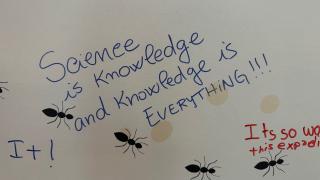 Science
is Knowledge
and Knowledge is
EVERYTHING!!!
I+!
Its so